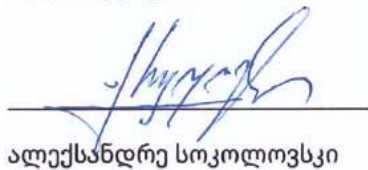 ალექსანდრე სოკოლოვსკი